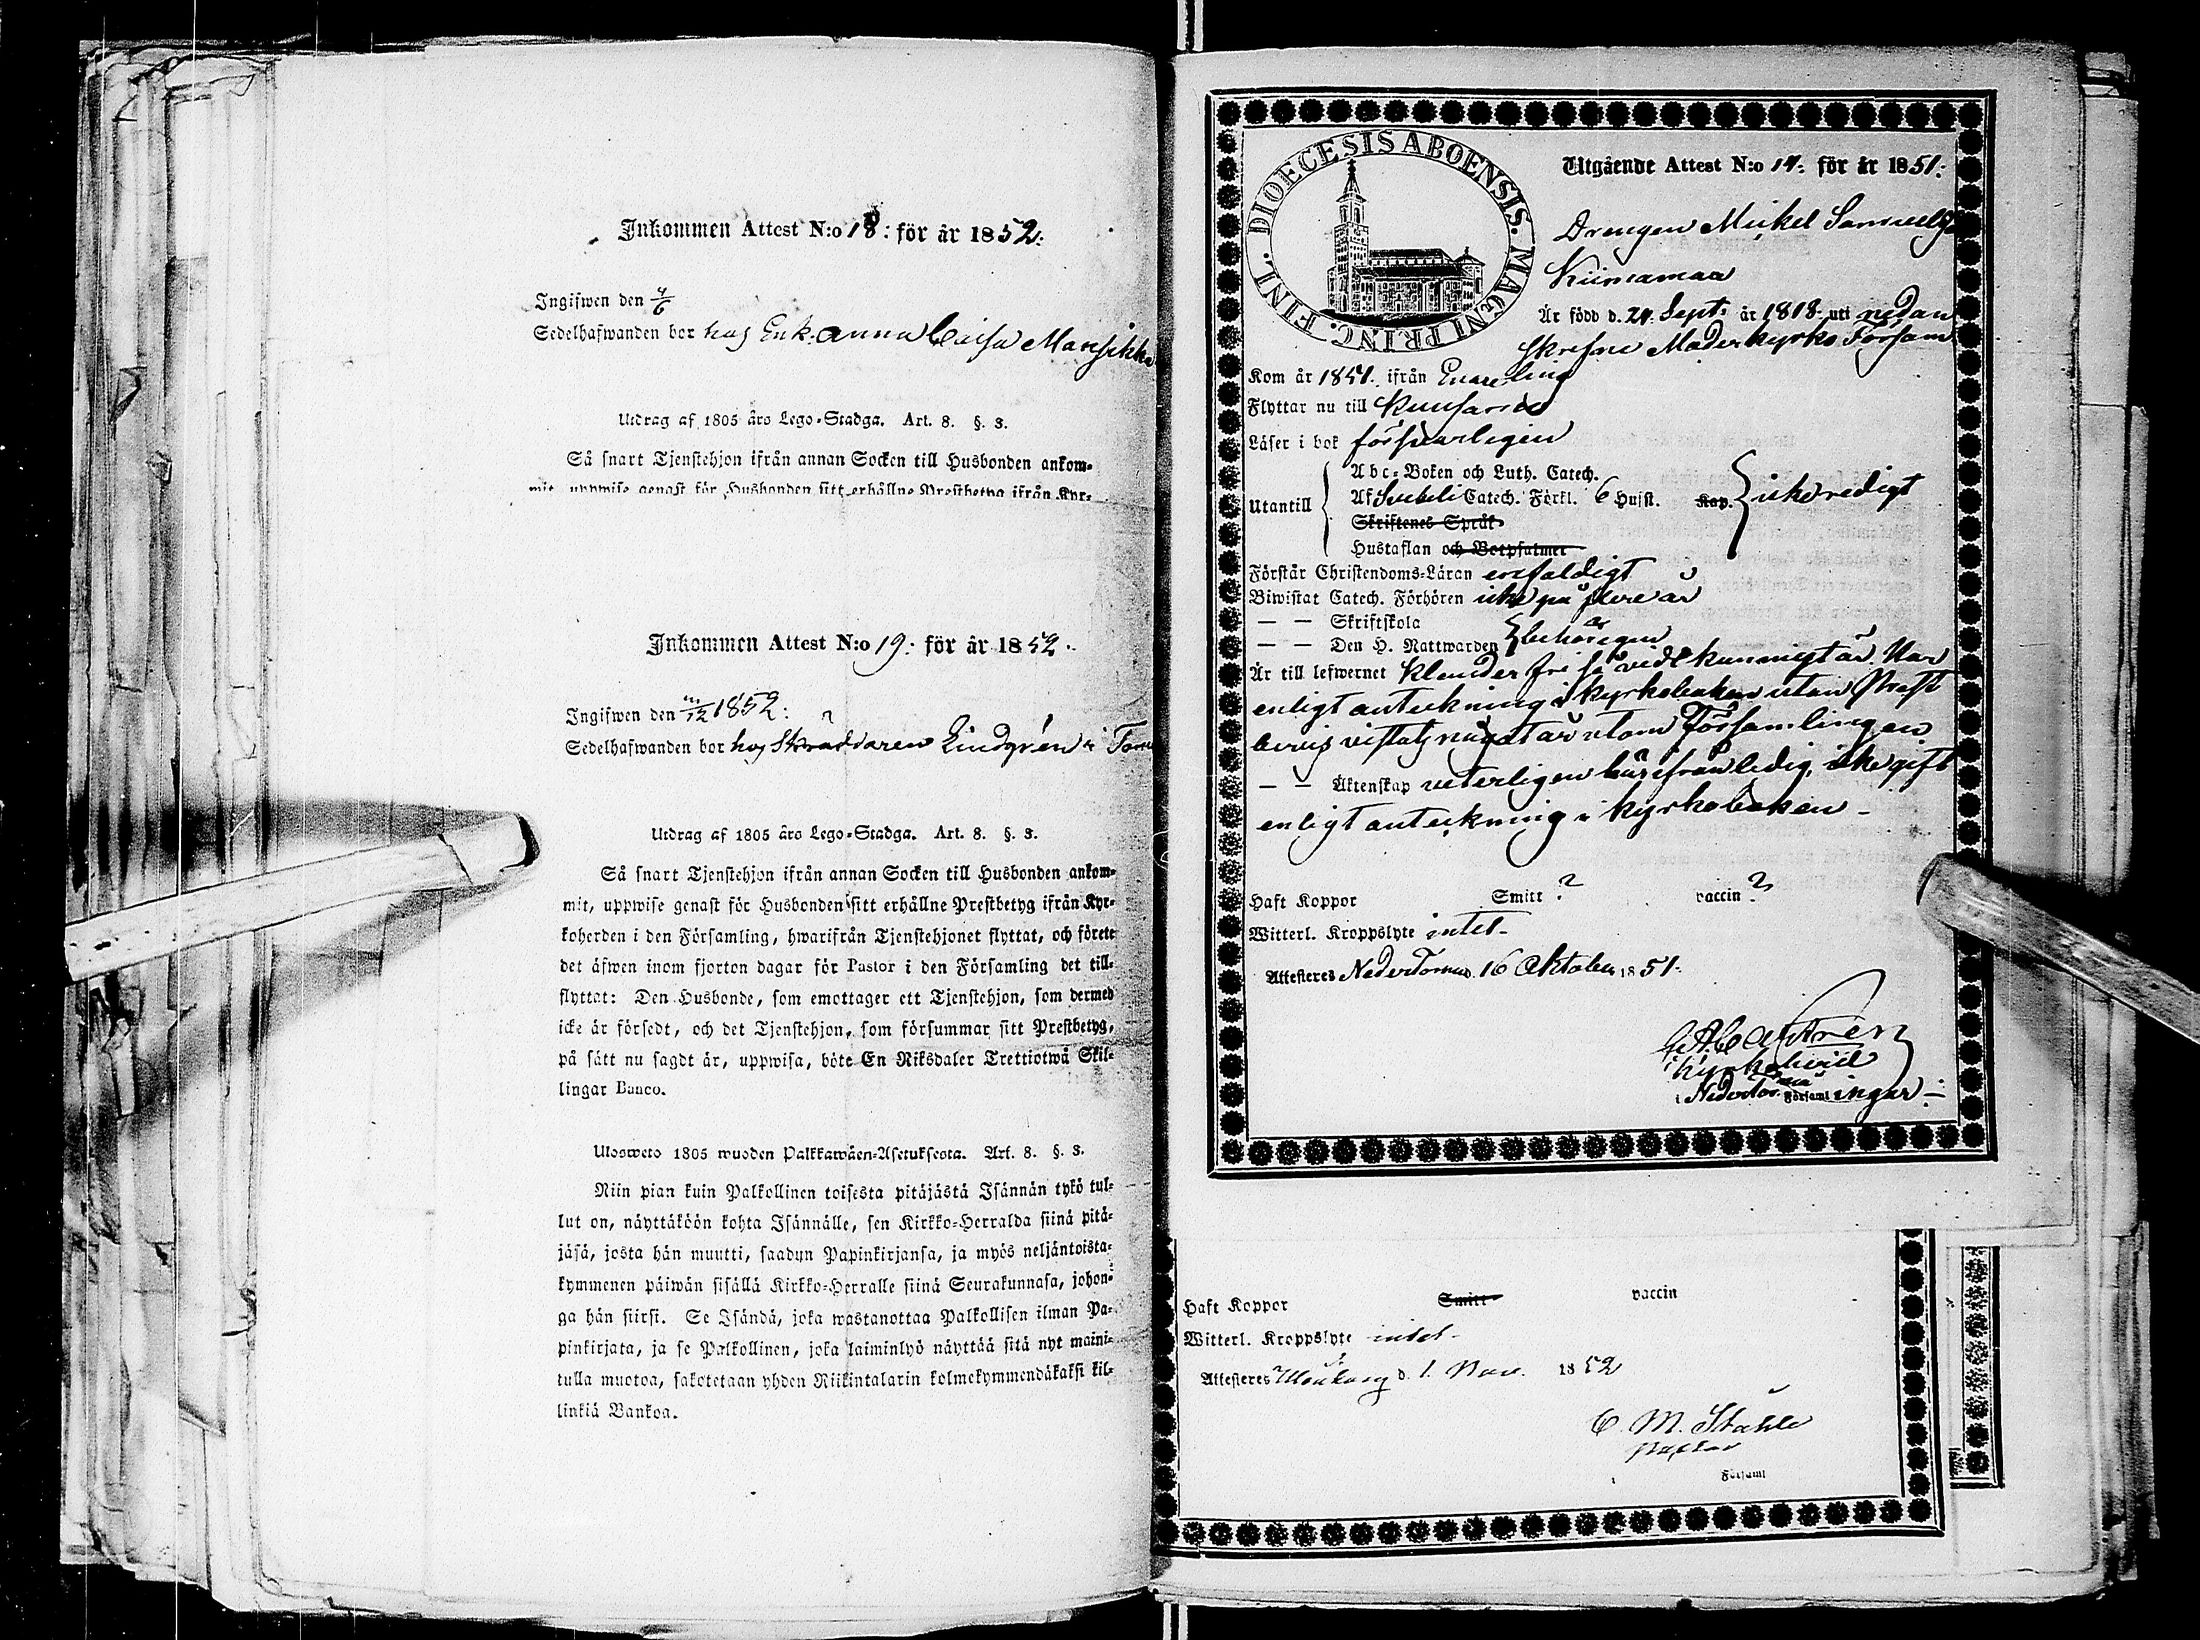 Inkommen Attest N:o 18: för år 1852:
Ingifwen den 4/6
Sedelhafwanden bor hos Enk. Anna Caisa Mansikka
Utdrag af 1805 års Lego-Stadga. Art. 8. §. 3.
Så snart Tjenstehjon ifrån annan Socken till Husbonden ankom-
mit, uppwise genast för Husbonden sitt erhållne Prestbetyg ifrån Kyr-
Inkommen Attest N:o 19: för år 1852.
Ingifwen den /12 1852:
Sedelhafwanden bor hos Lindgrén i
Utdrag af 1805 års Lego-Stadga. Art. 8. §. 3.
Så snart Tjenstehjon ifrån annan Socken till Husbonden ankom-
mit, uppwise genast för Husbonden sitt erhållne Prestbetyg ifrån Kyr-
koherden i den Församling, hwarifrån Tjenstehjonet flyttat, och förete
det äfwen inom fjorton dagar för Pastor i den Församling det till-
flyttat: Den Husbonde, som emottager ett Tjenstehjon, som dermed
icke är försedt, och det Tjenstehjon, som försummar sitt Prestbetyg,
på sätt nu sagdt är, uppwisa, böte En Riksdaler Trettiotwå Skil-
lingar Banco.
Ulosweto 1805 wuoden Palkkawäen-Asetuksesta. Art. 8. §. 3.
Niin pian kuin Palkollinen toisesta pitäjästä Isännän tykö tul-
lut on, näyttäköön kohta Isännälle, sen Kirkko-Herralda siinä pitä-
jäsä, josta hän muutti, saadun Papinkirjansa, ja myös neljäntoista-
kymmenen päiwän sisällä Kirkko-Herralle siinä Seurakunnasa, johon-
ga hän siirsi. Se Isändä, joka wastanottaa Palkollisen ilman Pa-
pinkirjata, ja se Palkollinen, joka laiminlyö näyttää sitä nyt maini-
tulla muotoa, sakotetaan yhden Riikintalarin kolmekymmendäkaksi kil-
linkiä Bankoa.
DIOECESIS ABOENSIS. MAGNI PRINC. FINL.
Utgående Attest N:o 14: för år 1851:
Drengen Mickel Samuelss.
Kiimamaa
Är född d. 21 Sept. år 1818. uti nedan
skrefne Moderkyrko Försam
ling
Kom år 1851. ifrån Enare
Flyttar nu till Kuusamo
Läser i bok försvarligen
Utantill
Abc-Boken och Luth. Catech.
Af Svebeli Catech. Förkl. 6 Hufst. Kap. icke redigt
Skriftenes Språk
Hustaflan och Botpsalmer
Förstår Christendoms-Läran enfaldigt
Biwistat Catech. Förhören icke på flere år
— — Skriftskola
— — Den H. Nattwarden behörigen
Är till lefwernet klander fri så vidt kunnigt är. Har
enligt anteckning i kyrkoboken utan Prest
bevis vistats något år utom Församlingen
— — Äktenskap veterligen härifrån ledig, icke gift
enligt anteckning i kyrkoboken —
Haft Koppor Smitt ? vaccin ?
Witterl. Kroppslyte intet.
Attesteras Neder Torneå d. 16 Oktober 1851:
Castrén
Kyrkoherde
i Nedertorneå Församlingar —
Haft Koppor Smitt vaccin
Witterl. Kroppslyte intet.
Attesteres Uleåborg d. 1. Nov. 1852
C. M. Ståhle
Pastor
i Församl